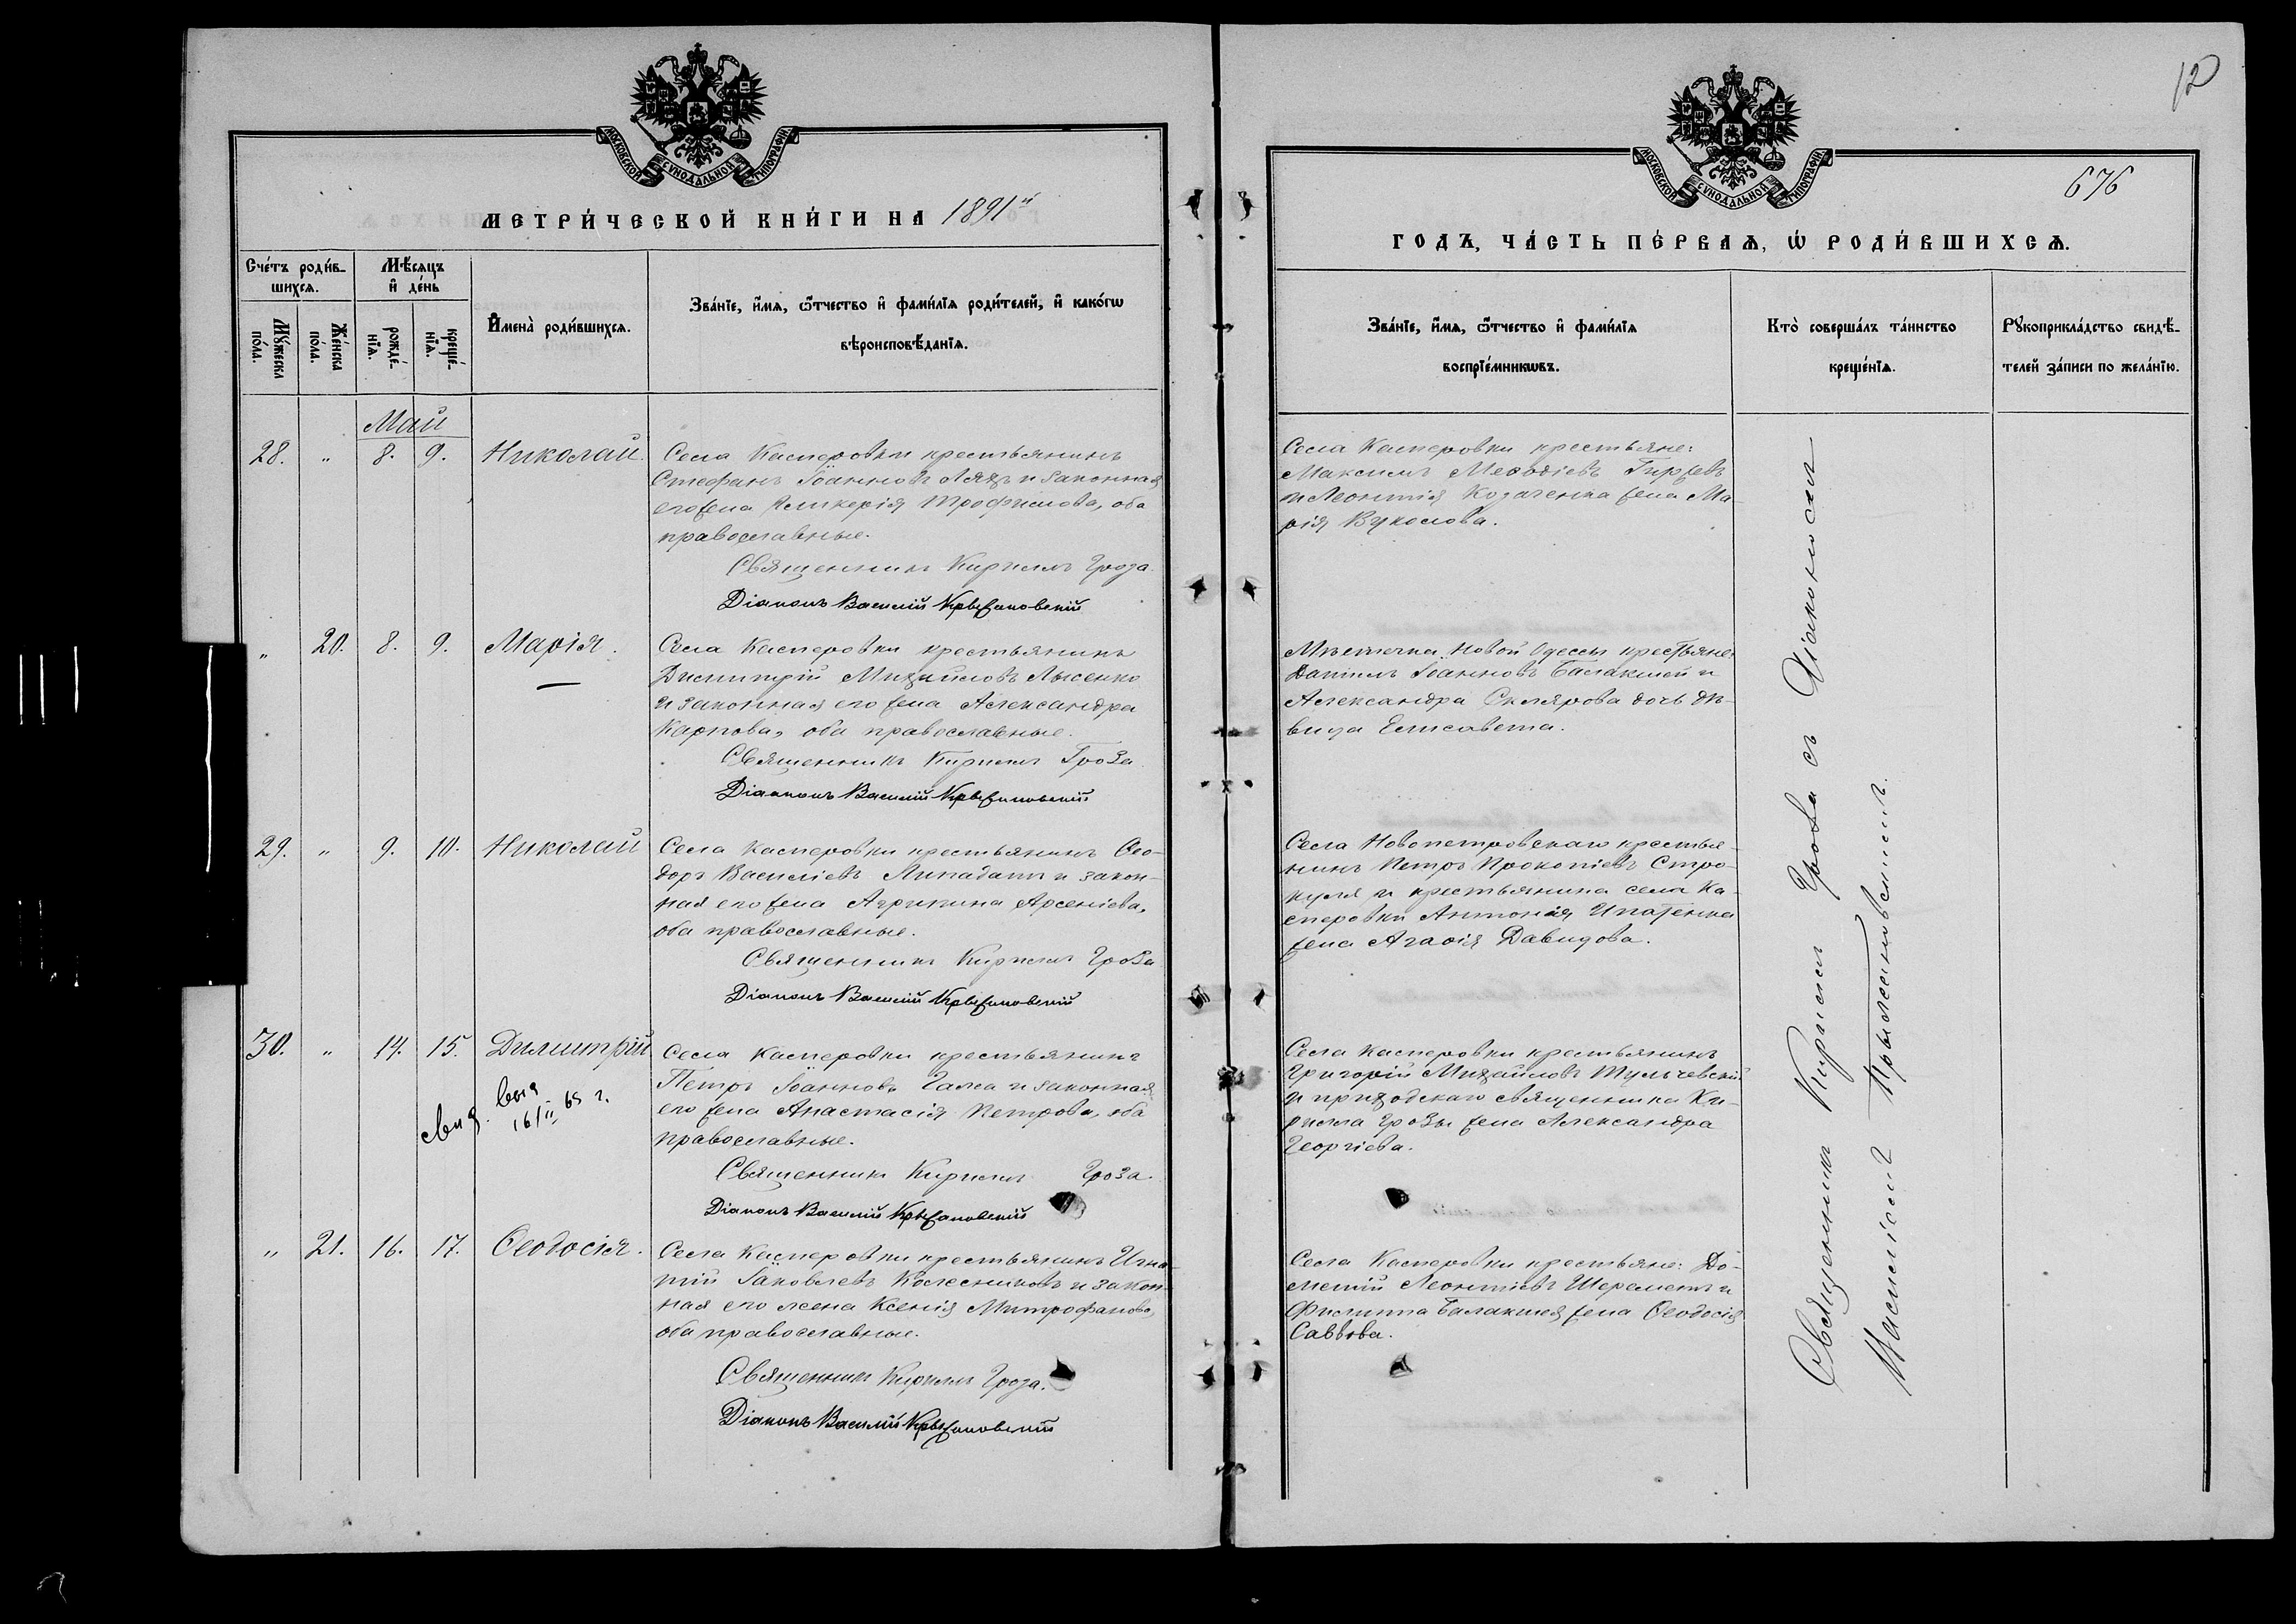 МОСКОВСКОЙ СѴНОДАЛЬНОЙ ТИПОГРАФІИ.
МЕТРИ́ЧЕСКОЙ КНИ́ГИ НА 1891й
Сче́тъ роди́в-
шихсѧ.
Мѣ́сѧцъ
и҆ де́нь
Мꙋ́жеска
по́ла.
Же́нска
по́ла.
рожде́-
нїѧ.
креще́-
нїѧ.
И҆мена̀ роди́вшихсѧ.
Зва́нїе, и҆́мѧ, ѻ҆́тчество и҆ фами́лїѧ роди́телей, и҆ како́гѡ
вѣроисповѣ́данїѧ.
Май
28. " 8. 9. Николай.
Села Касперовки крестьянинъ
Стефанъ Іоанновъ и законная
его жена Гликерія Трофимова, оба
православные.
Священникъ Кириллъ Гроза.
Діаконъ Василій Крыжановскій
" 20. 8. 9. Марія.
Села Касперовки крестьянинъ
Димитрій Михайловъ Лысенко
и законная его жена Александра
Карпова, оба православные.
Священникъ Кириллъ Гроза
Діаконъ Василій Крыжановскій
29. " 9. 10. Николай
Села Касперовки крестьянинъ Ѳео-
доръ Василіевъ и закон-
ная его жена Агрипина Арсеніева,
оба православные.
Священникъ Кириллъ Гроза
Діаконъ Василій Крыжановскій
30. " 14. 15. Димитрій
свид. 16/II 65 г.
Села Касперовки крестьянинъ
Петръ Іоанновъ Галка и законная
его жена Анастасія Петрова, оба
православные.
Священникъ Кириллъ Гроза.
Діаконъ Василій Крыжановскій
" 21. 16. 17. Ѳеодосія.
Села Касперовки крестьянинъ Игна-
тій Іаковлевъ Колесниковъ и закон-
ная его жена Ксенія Митрофанова,
оба православные.
Священникъ Кириллъ Гроза.
Діаконъ Василій Крыжановскій
12
МОСКОВСКОЙ СѴНОДАЛЬНОЙ ТИПОГРАФІИ.
676
ГОДЪ, ЧА́СТЬ ПЕ́РВАѦ, Ѡ҆ РОДИ́ВШИХСѦ.
Зва́нїе, и҆́мѧ, ѻ҆́тчество и҆ фами́лїѧ
воспрїе́мникѡвъ.
Кто̀ соверша́лъ та́инство
креще́нїѧ.
Рꙋкоприкла́дство свидѣ́-
телей за́писи по жела́нїю.
Села Касперовки крестьяне:
Максимъ Меѳодіевъ
и Леонтія Козаченка жена Ма-
рія Вуколова.
Мѣстечка Новой Одессы крестьяне:
Даніилъ Іоанновъ Балакшей и
Александра Склярова дочь дѣ-
вица Елисавета.
Села Новопетровскаго крестья-
нинъ Петръ Прокопіевъ Стро-
куля и крестьянина села Ка-
сперовки Антонія Ипатенка
жена Агаѳія Давидова.
Села Касперовки крестьянинъ
Григорій Михайловъ Тульчевскій
и приходскаго священника Ки-
рилла Грозы жена Александра
Георгіева.
Села Касперовки крестьяне: До-
метій Леонтіевъ Шереметъ и
Филиппа Балакшея жена Ѳеодосія
Саввова.
Священникъ Кириллъ Гроза съ Діакономъ
Василіемъ Крыжановскимъ.